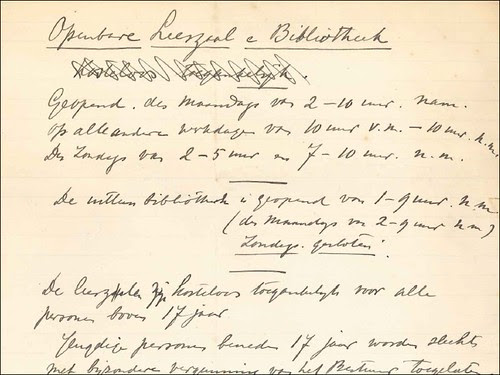 Openbare Leeszaal e Bibliotheek
Kosteloos toegankelijk.
Geopend. des Maandags van 2-10 uur. nam.
op alle andere werkdagen van 10 uur v.m. - 10 uur. n.m.
Des Zondags van 2-5 uur en 7-10 uur. n.m.
De uitleenbibliotheek is geopend van 1-9 uur. n.m
(des Maandags van 2-9 uur n.m)
Zondags. gesloten.
De leeszalen zijn kosteloos toegankelijk voor alle
personen boven 17 jaar
Jeugdige personen beneden 17 jaar worden slechts
met bijzondere vergunning van het Bestuur toegelaten